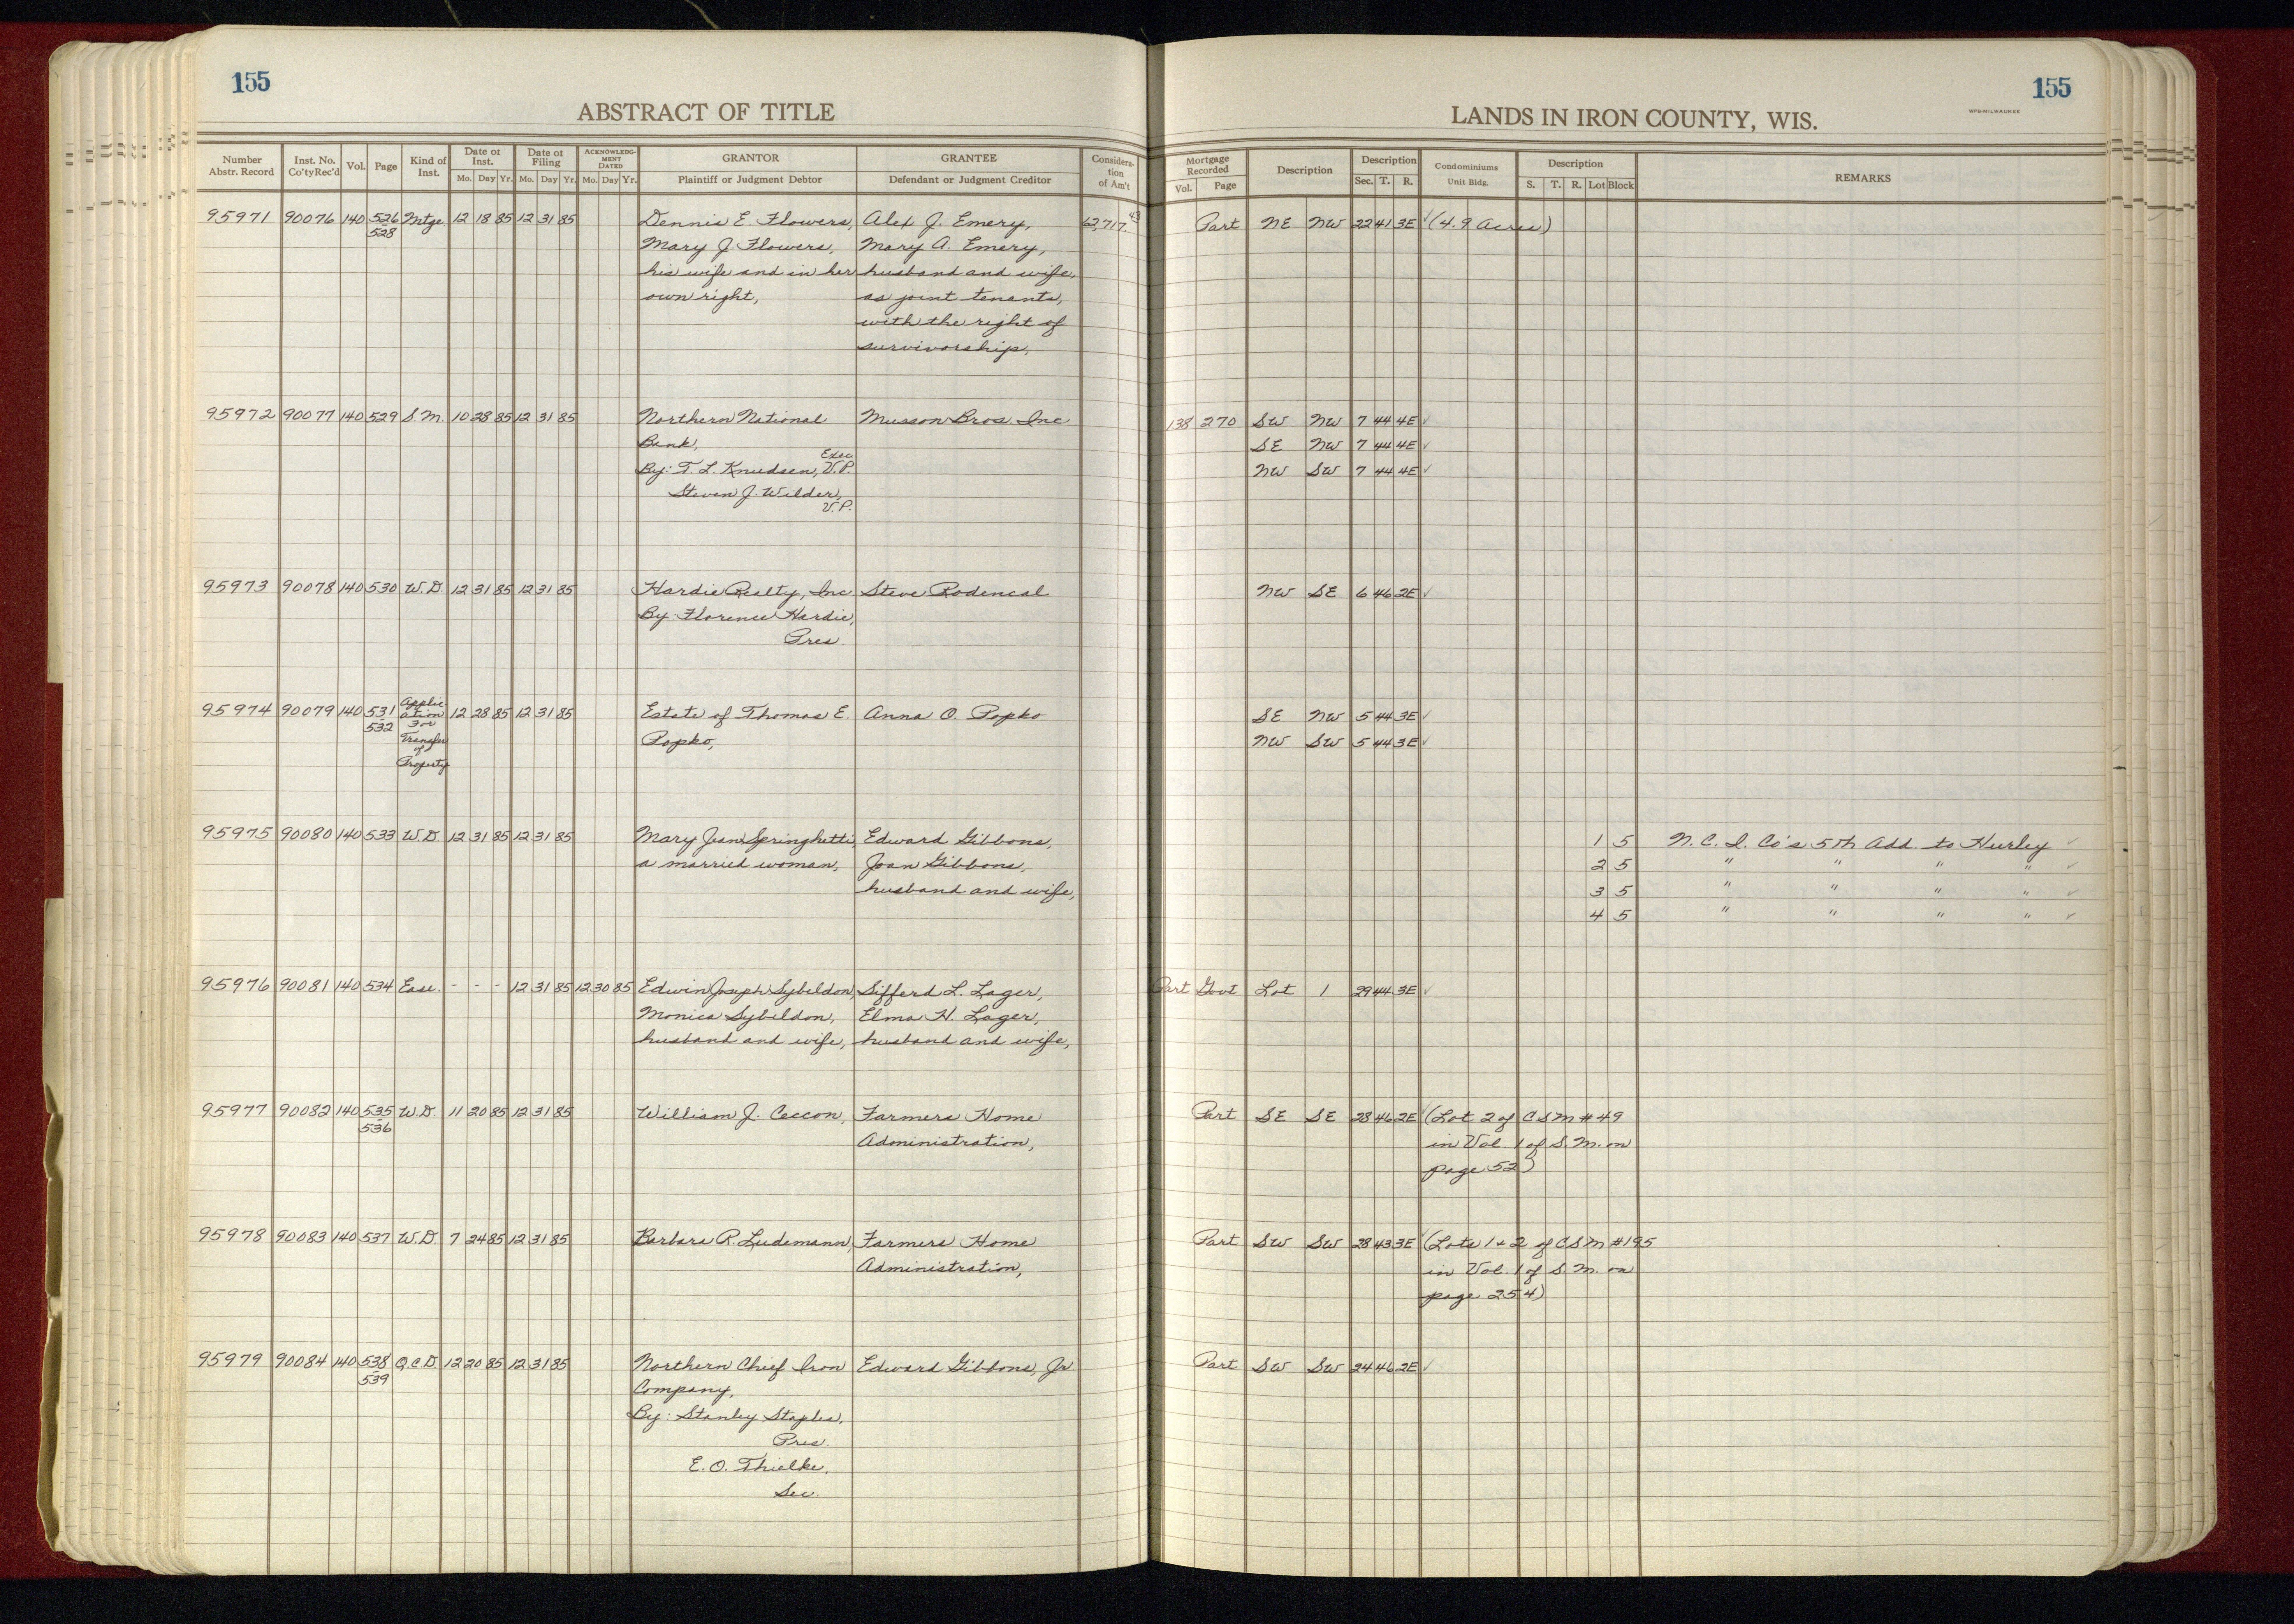 155
155
ABSTRACT OF TITLE
LANDS IN IRON COUNTY, WIS.
WPB-MILWAUKEE
Number Abstr. Record
Inst. No. Co'ty Rec'd
Vol.
Page
Kind of Inst.
Date of Inst.
Mo. Day Yr.
Date of Filing
Mo. Day Yr.
ACKNOWLEDGMENT DATED
Mo. Day Yr.
GRANTOR
Plaintiff or Judgment Debtor
GRANTEE
Defendant or Judgment Creditor
Consideration of Am't
Mortgage Recorded
Vol. Page
Description
Description
Sec. T. R.
Condominiums
Unit Bldg.
Description
S. T. R. Lot Block
REMARKS
95971 90076 140 526 Mtge. 12 18 85 12 31 85 Dennis E. Flowers, Alex J. Emery, 62,717.43 Part NE NW 22 41 3E ✓ (4.9 Acres)
528 Mary J. Flowers, Mary A. Emery,
his wife and in her husband and wife,
own right, as joint tenants,
with the right of
survivorship,
95972 90077 140 529 S.M. 10 28 85 12 31 85 Northern National Musson Bros. Inc 138 270 SW NW 7 44 4E ✓
Bank, SE NW 7 44 4E ✓
By: T. L. Knudsen, Exec. V.P. NW SW 7 44 4E ✓
Steven J. Wilder,
V.P.
95973 90078 140 530 W.D. 12 31 85 12 31 85 Hardie Realty, Inc. Steve Rodencal NW SE 6 46 2E ✓
By: Florence Hardie,
Pres.
95974 90079 140 531 - 532 Application For Transfer of Property 12 28 85 12 31 85 Estate of Thomas E. Anna O. Popko SE NW 5 44 3E ✓
Popko, NW SW 5 44 3E ✓
95975 90080 140 533 W.D. 12 31 85 12 31 85 Mary Jean Springhetti, Edward Gibbons, 1 5 N.C.I. Co's 5th Add. to Hurley ✓
a married woman, Joan Gibbons, 2 5 " " " " ✓
husband and wife, 3 5 " " " " ✓
4 5 " " " " ✓
95976 90081 140 534 Ease. - - - 12 31 85 12 30 85 Edwin Joseph Sybeldon, Sifferd L. Lager, Part Govt Lot 1 29 44 3E ✓
Monica Sybeldon, Elma H. Lager,
husband and wife, husband and wife,
95977 90082 140 535 W.D. 11 20 85 12 31 85 William J. Ceccon, Farmers Home Part SE SE 28 46 2E ✓ (Lot 2 of CSM #49
536 Administration, in Vol. 1 of S.M. on
page 52)
95978 90083 140 537 W.D. 7 24 85 12 31 85 Barbara R. Ludemann, Farmers Home Part SW SW 28 43 3E ✓ (Lots 1 & 2 of CSM #195
Administration, in Vol. 1 of S.M. on
page 254)
95979 90084 140 538 Q.C.D. 12 20 85 12 31 85 Northern Chief Iron Edward Gibbons, Jr. Part SW SW 24 46 2E ✓
539 Company,
By: Stanley Staples,
Pres.
E. O. Thielke,
Sec.